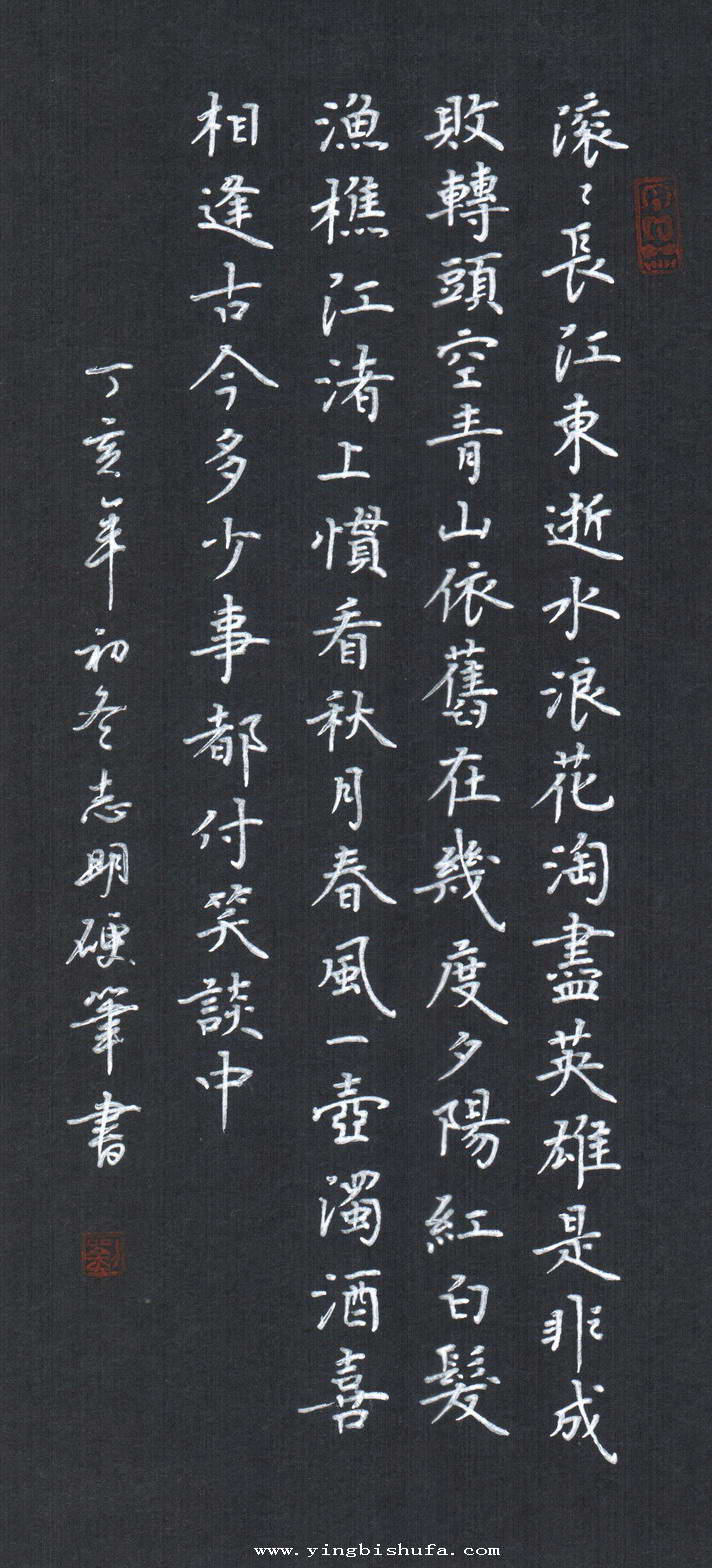 滚〻長江東逝水浪花淘盡英雄是非成
敗轉頭空青山依舊在幾度夕陽紅白髮
漁樵江渚上慣看秋月春風一壺濁酒喜
相逢古今多少事都付笑談中
丁亥年初冬志明硬筆書
劉
www.yingbishufa.com